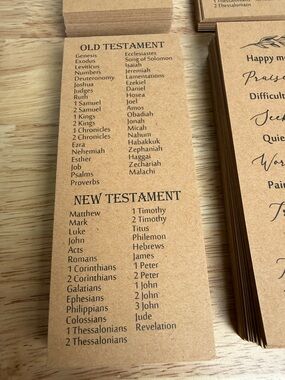 1 Thessalonians
2 Thessalonians
2 Thessalonians
OLD TESTAMENT
Genesis
Exodus
Leviticus
Numbers
Deuteronomy
Joshua
Judges
Ruth
1 Samuel
2 Samuel
1 Kings
2 Kings
1 Chronicles
2 Chronicles
Ezra
Nehemiah
Esther
Job
Psalms
Proverbs
Ecclesiastes
Song of Solomon
Isaiah
Jeremiah
Lamentations
Ezekiel
Daniel
Hosea
Joel
Amos
Obadiah
Jonah
Micah
Nahum
Habakkuk
Zephaniah
Haggai
Zechariah
Malachi
NEW TESTAMENT
Matthew
Mark
Luke
John
Acts
Romans
1 Corinthians
2 Corinthians
Galatians
Ephesians
Philippians
Colossians
1 Thessalonians
2 Thessalonians
1 Timothy
2 Timothy
Titus
Philemon
Hebrews
James
1 Peter
2 Peter
1 John
2 John
3 John
Jude
Revelation
Happy
Praise
Difficult
Seek